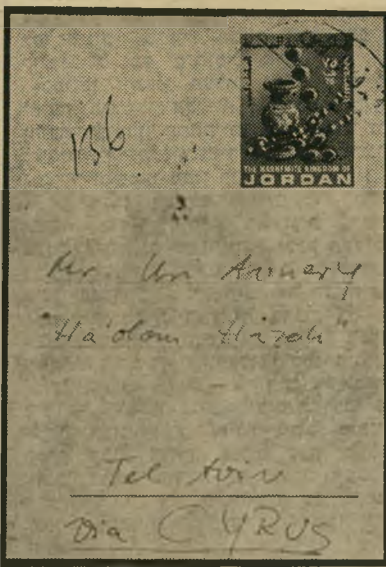 136
THE HASHEMITE KINGDOM OF
JORDAN
Mr Uri Avnery
"Ha'olam Hazeh"
Tel Aviv
via CYRUS